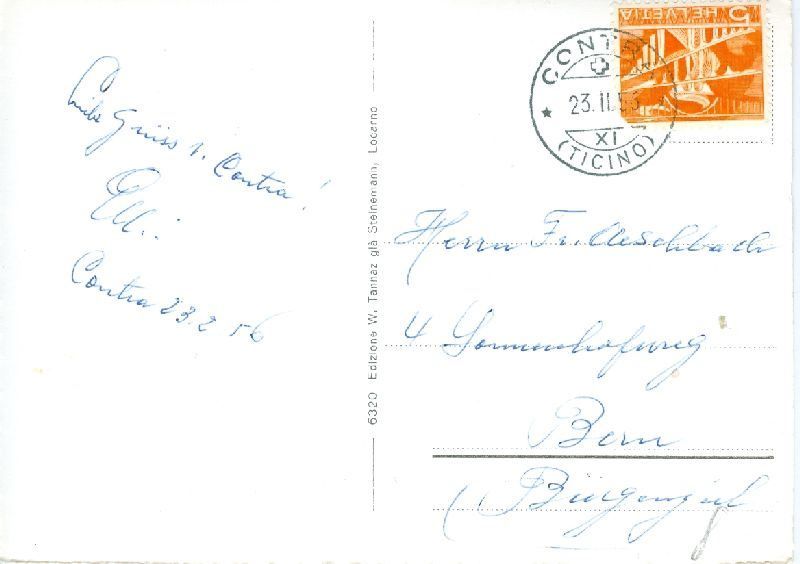 Liebe Grüss v. Contra!
Elli.
Contra 23.2 56
6320 Edizione W. Tannaz già Steinemann, Locarno
HELVETIA 5
CONTRA
23.II.56
XI
(TICINO)
Herrn Fr. Aeschbach
4 Sonnenhofweg
Bern